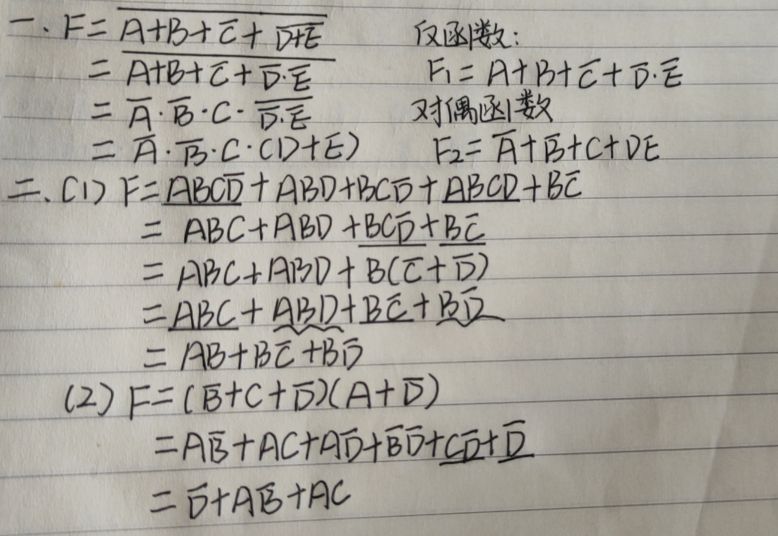 一、F = \overline{A+B+\overline{C}+\overline{D+E}} 反函数:
= \overline{A+B+\overline{C}+\overline{D}·\overline{E}} F₁ = A+B+\overline{C}+\overline{D}·\overline{E}
= \overline{A}·\overline{B}·C·\overline{\overline{D}·\overline{E}} 对偶函数
= \overline{A}·\overline{B}·C·(D+E) F₂ = \overline{A}+\overline{B}+C+DE
二、(1) F = ABC\overline{D}+ABD+BC\overline{D}+ABCD+B\overline{C}
= ABC+ABD+BC\overline{D}+B\overline{C}
= ABC+ABD+B(\overline{C}+\overline{D})
= ABC+ABD+B\overline{C}+B\overline{D}
= AB+B\overline{C}+B\overline{D}
(2) F = (\overline{B}+C+\overline{D})(A+\overline{D})
= A\overline{B}+AC+A\overline{D}+\overline{B}\overline{D}+C\overline{D}+\overline{D}
= \overline{D}+A\overline{B}+AC